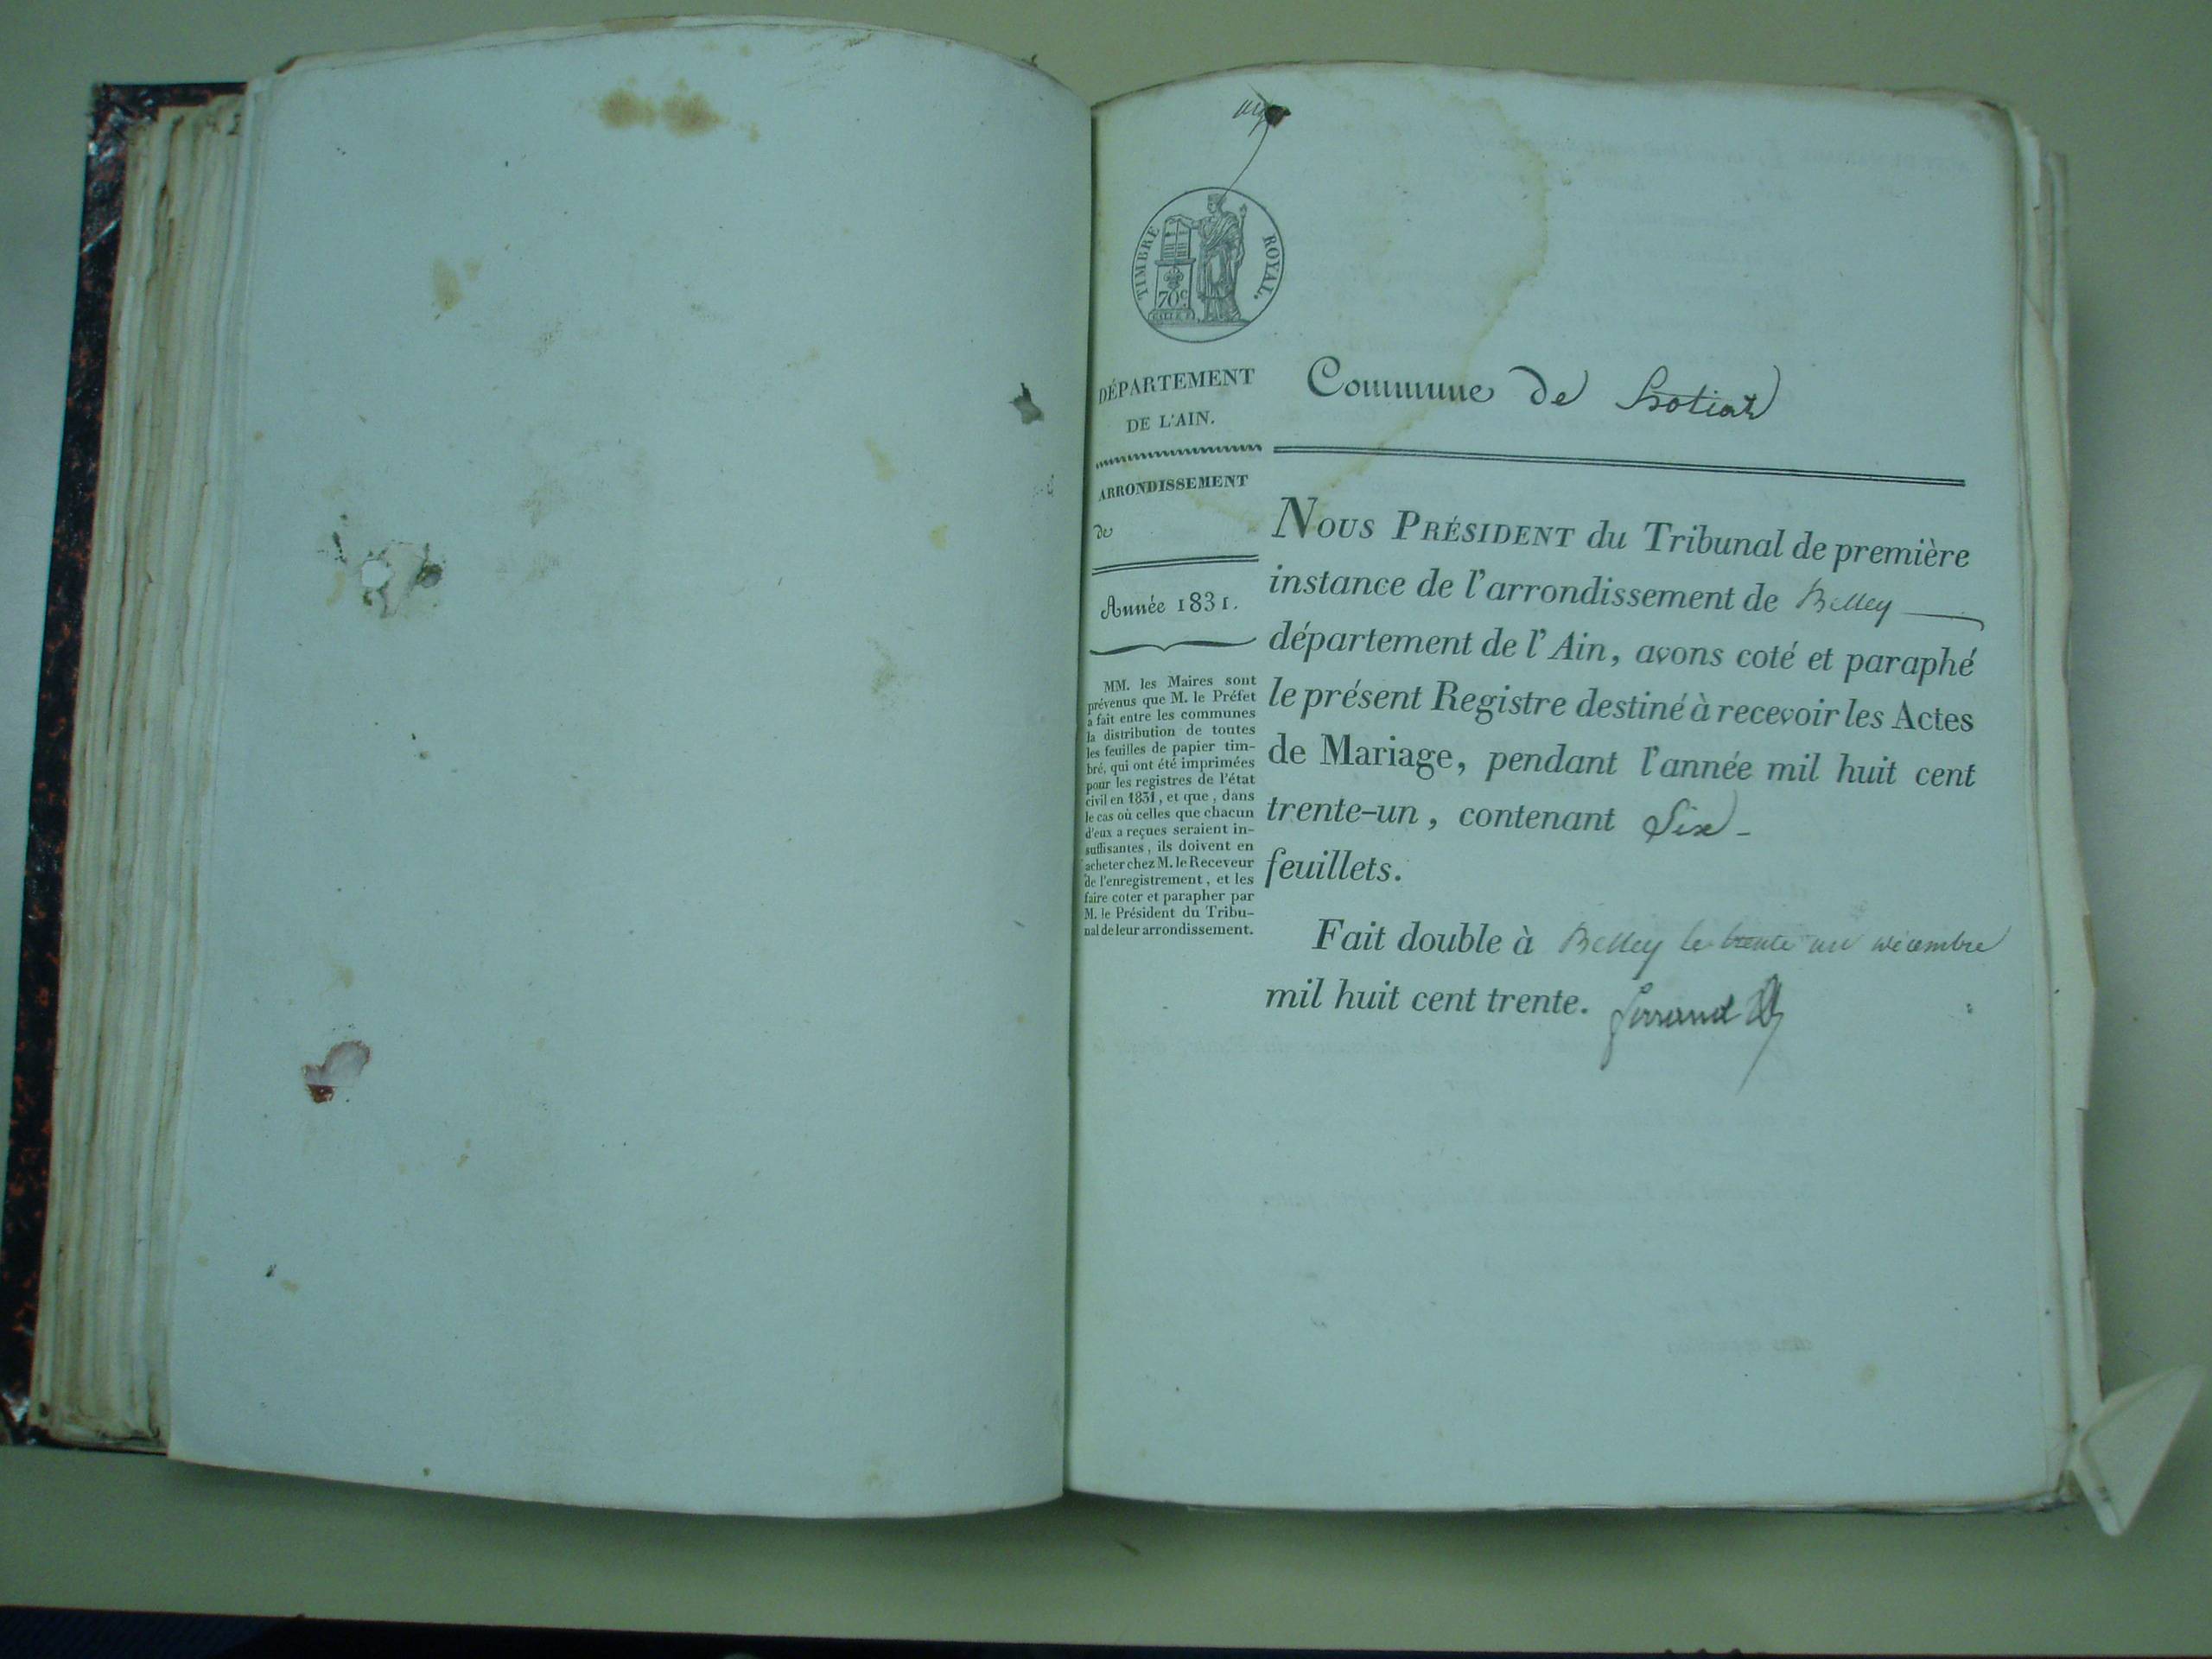 TIMBRE ROYAL.
70c
DÉPARTEMENT
DE L'AIN.
ARRONDISSEMENT
de
Année 1831.
MM. les Maires sont
prévenus que M. le Préfet
a fait entre les communes
la distribution de toutes
les feuilles de papier tim-
bré, qui ont été imprimées
pour les registres de l'état
civil en 1831, et que, dans
le cas où celles que chacun
d'eux a reçues seraient in-
suffisantes, ils doivent en
acheter chez M. le Receveur
de l'enregistrement, et les
faire coter et parapher par
M. le Président du Tribu-
nal de leur arrondissement.
Commune de
NOUS PRÉSIDENT du Tribunal de première
instance de l'arrondissement de Belley
département de l'Ain, avons coté et paraphé
le présent Registre destiné à recevoir les Actes
de Mariage, pendant l'année mil huit cent
trente-un, contenant Six
feuillets.
Fait double à Belley le trente un décembre
mil huit cent trente. Ferrand